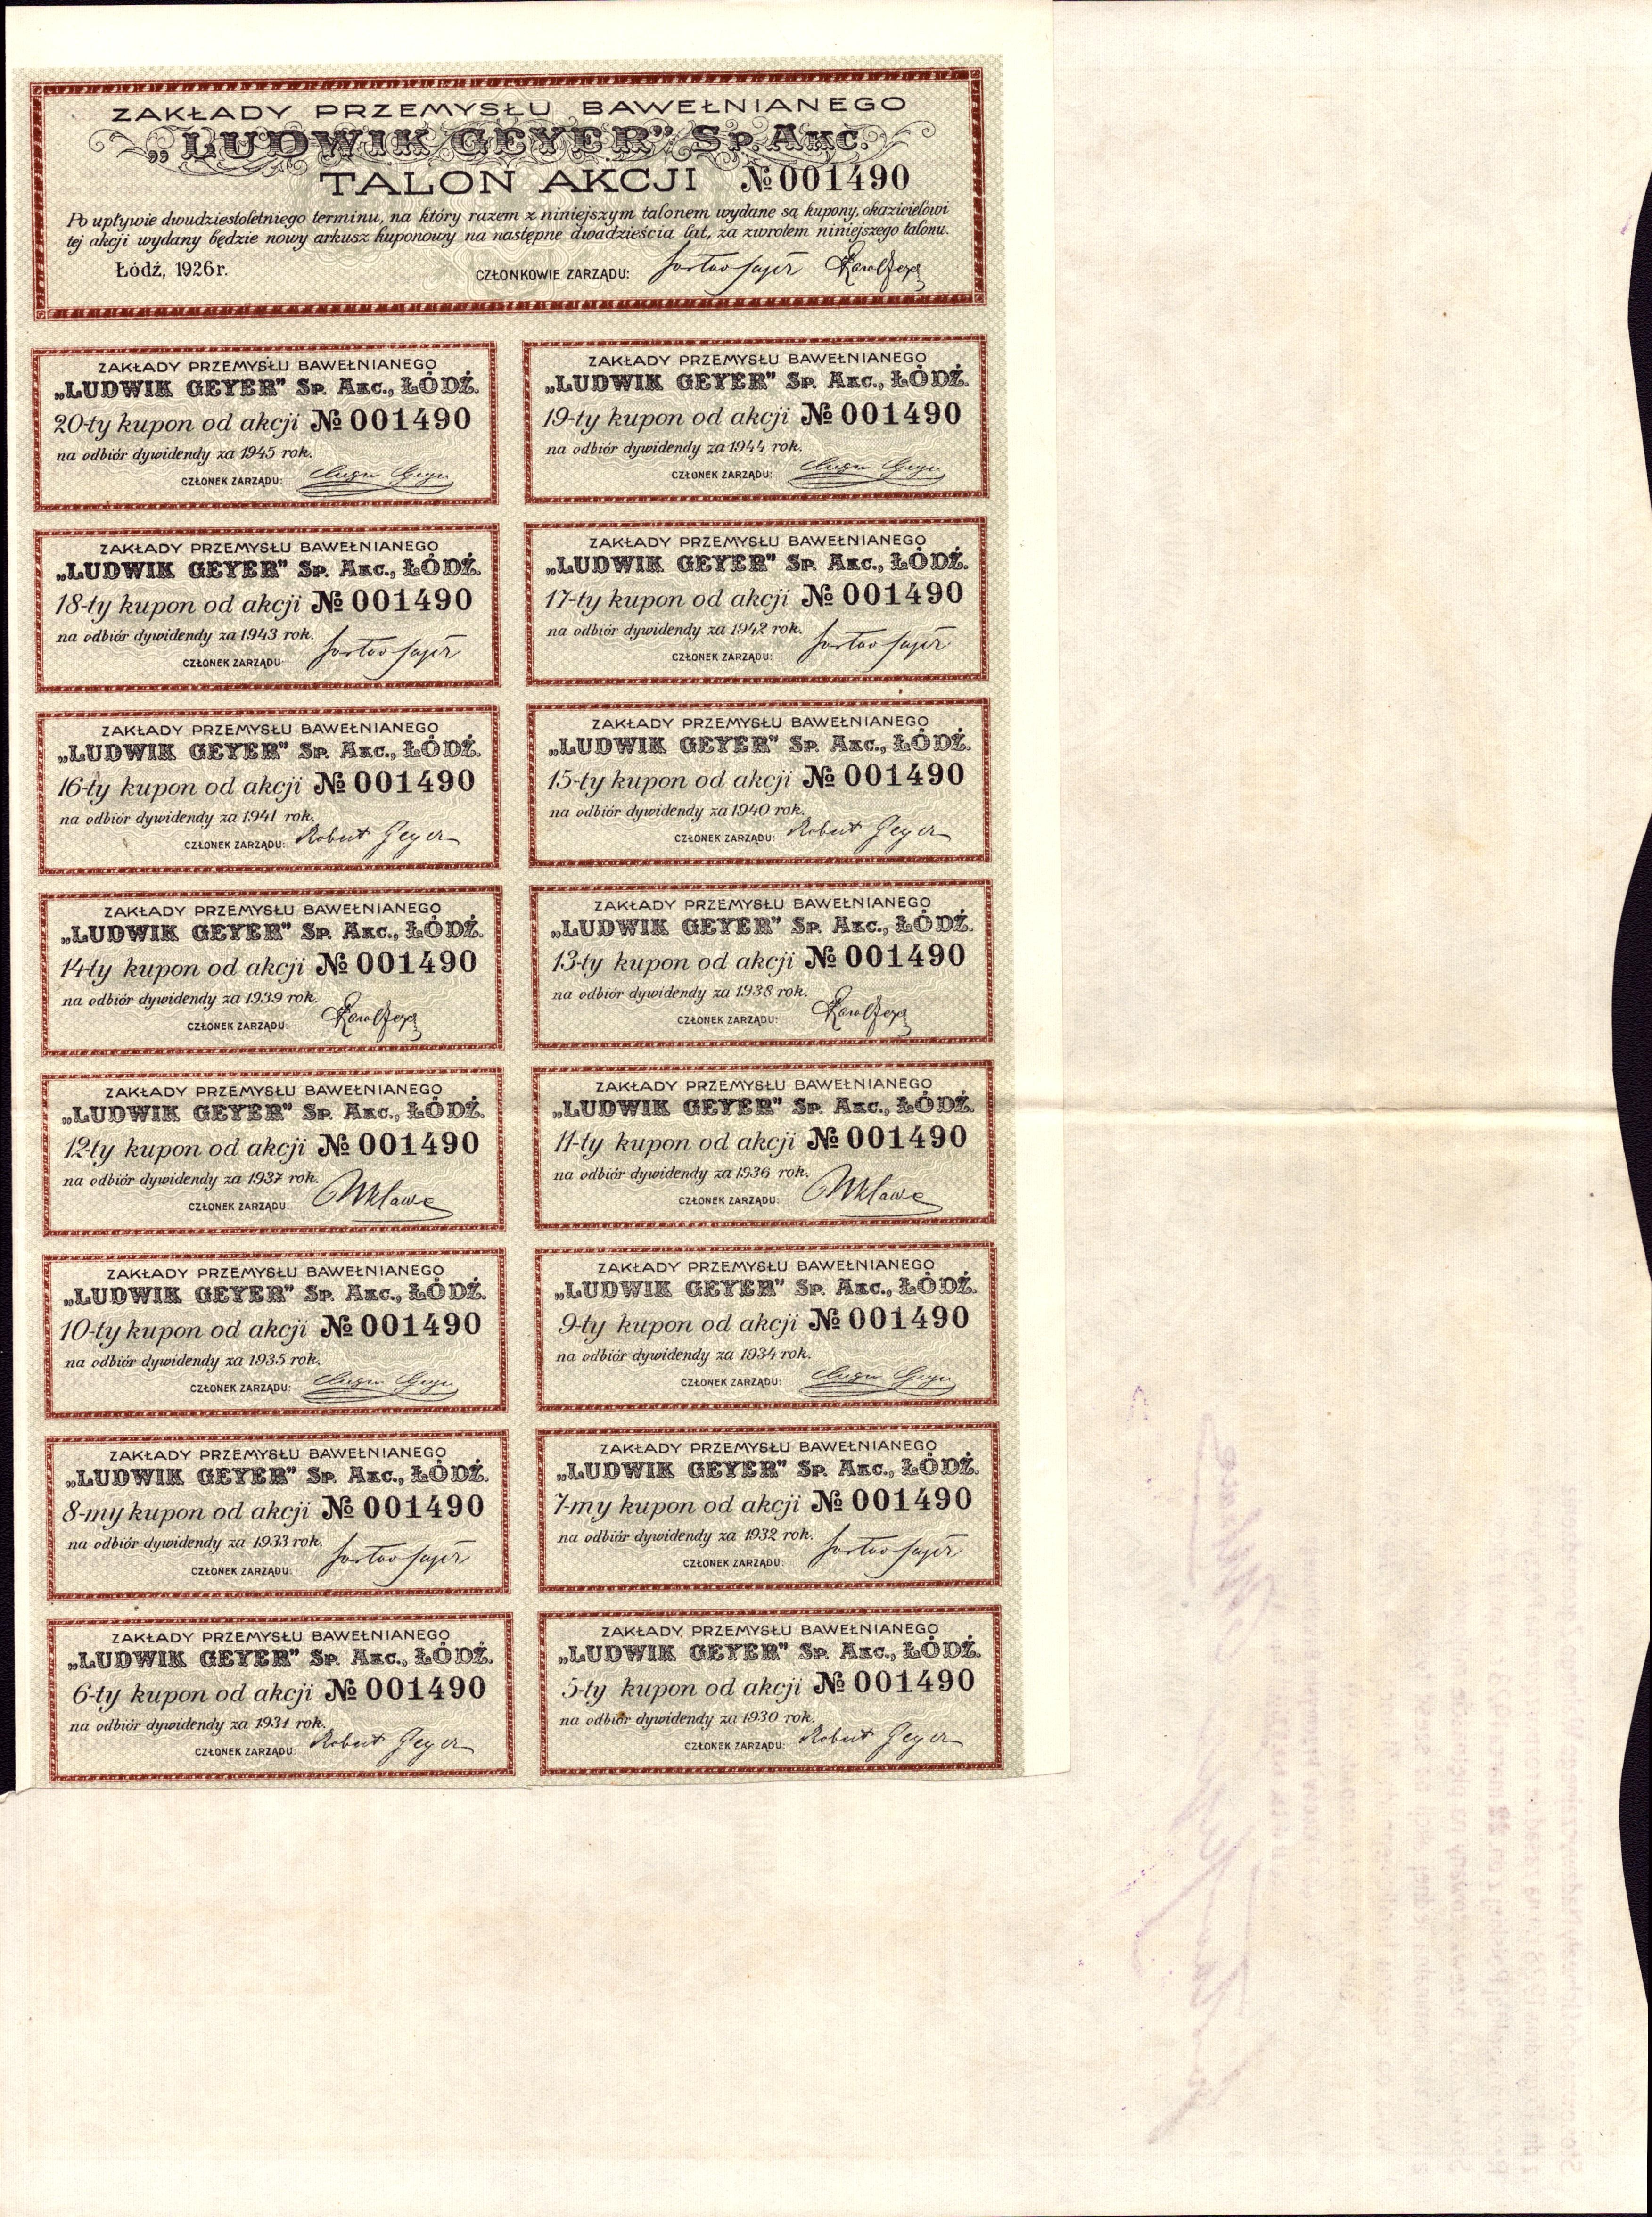 ZAKŁADY PRZEMYSŁU BAWEŁNIANEGO
„LUDWIK GEYER” Sp. Akc.
TALON AKCJI № 001490
Po upływie dwudziestoletniego terminu, na który razem z niniejszym talonem wydane są kupony, okazicielowi
tej akcji wydany będzie nowy arkusz kuponowy na następne dwadzieścia lat, za zwrotem niniejszego talonu.
Łódź, 1926 r.
CZŁONKOWIE ZARZĄDU:
ZAKŁADY PRZEMYSŁU BAWEŁNIANEGO
„LUDWIK GEYER” Sp. Akc., ŁÓDŹ.
20-ty kupon od akcji № 001490
na odbiór dywidendy za 1945 rok.
CZŁONEK ZARZĄDU:
ZAKŁADY PRZEMYSŁU BAWEŁNIANEGO
„LUDWIK GEYER” Sp. Akc., ŁÓDŹ.
19-ty kupon od akcji № 001490
na odbiór dywidendy za 1944 rok.
CZŁONEK ZARZĄDU:
ZAKŁADY PRZEMYSŁU BAWEŁNIANEGO
„LUDWIK GEYER” Sp. Akc., ŁÓDŹ.
18-ty kupon od akcji № 001490
na odbiór dywidendy za 1943 rok.
CZŁONEK ZARZĄDU:
ZAKŁADY PRZEMYSŁU BAWEŁNIANEGO
„LUDWIK GEYER” Sp. Akc., ŁÓDŹ.
17-ty kupon od akcji № 001490
na odbiór dywidendy za 1942 rok.
CZŁONEK ZARZĄDU:
ZAKŁADY PRZEMYSŁU BAWEŁNIANEGO
„LUDWIK GEYER” Sp. Akc., ŁÓDŹ.
16-ty kupon od akcji № 001490
na odbiór dywidendy za 1941 rok.
CZŁONEK ZARZĄDU: Robert Geyer
ZAKŁADY PRZEMYSŁU BAWEŁNIANEGO
„LUDWIK GEYER” Sp. Akc., ŁÓDŹ.
15-ty kupon od akcji № 001490
na odbiór dywidendy za 1940 rok.
CZŁONEK ZARZĄDU: Robert Geyer
ZAKŁADY PRZEMYSŁU BAWEŁNIANEGO
„LUDWIK GEYER” Sp. Akc., ŁÓDŹ.
14-ty kupon od akcji № 001490
na odbiór dywidendy za 1939 rok.
CZŁONEK ZARZĄDU:
ZAKŁADY PRZEMYSŁU BAWEŁNIANEGO
„LUDWIK GEYER” Sp. Akc., ŁÓDŹ.
13-ty kupon od akcji № 001490
na odbiór dywidendy za 1938 rok.
CZŁONEK ZARZĄDU:
ZAKŁADY PRZEMYSŁU BAWEŁNIANEGO
„LUDWIK GEYER” Sp. Akc., ŁÓDŹ.
12-ty kupon od akcji № 001490
na odbiór dywidendy za 1937 rok.
CZŁONEK ZARZĄDU:
ZAKŁADY PRZEMYSŁU BAWEŁNIANEGO
„LUDWIK GEYER” Sp. Akc., ŁÓDŹ.
11-ty kupon od akcji № 001490
na odbiór dywidendy za 1936 rok.
CZŁONEK ZARZĄDU:
ZAKŁADY PRZEMYSŁU BAWEŁNIANEGO
„LUDWIK GEYER” Sp. Akc., ŁÓDŹ.
10-ty kupon od akcji № 001490
na odbiór dywidendy za 1935 rok.
CZŁONEK ZARZĄDU:
ZAKŁADY PRZEMYSŁU BAWEŁNIANEGO
„LUDWIK GEYER” Sp. Akc., ŁÓDŹ.
9-ty kupon od akcji № 001490
na odbiór dywidendy za 1934 rok.
CZŁONEK ZARZĄDU:
ZAKŁADY PRZEMYSŁU BAWEŁNIANEGO
„LUDWIK GEYER” Sp. Akc., ŁÓDŹ.
8-my kupon od akcji № 001490
na odbiór dywidendy za 1933 rok.
CZŁONEK ZARZĄDU:
ZAKŁADY PRZEMYSŁU BAWEŁNIANEGO
„LUDWIK GEYER” Sp. Akc., ŁÓDŹ.
7-my kupon od akcji № 001490
na odbiór dywidendy za 1932 rok.
CZŁONEK ZARZĄDU:
ZAKŁADY PRZEMYSŁU BAWEŁNIANEGO
„LUDWIK GEYER” Sp. Akc., ŁÓDŹ.
6-ty kupon od akcji № 001490
na odbiór dywidendy za 1931 rok.
CZŁONEK ZARZĄDU: Robert Geyer
ZAKŁADY PRZEMYSŁU BAWEŁNIANEGO
„LUDWIK GEYER” Sp. Akc., ŁÓDŹ.
5-ty kupon od akcji № 001490
na odbiór dywidendy za 1930 rok.
CZŁONEK ZARZĄDU: Robert Geyer